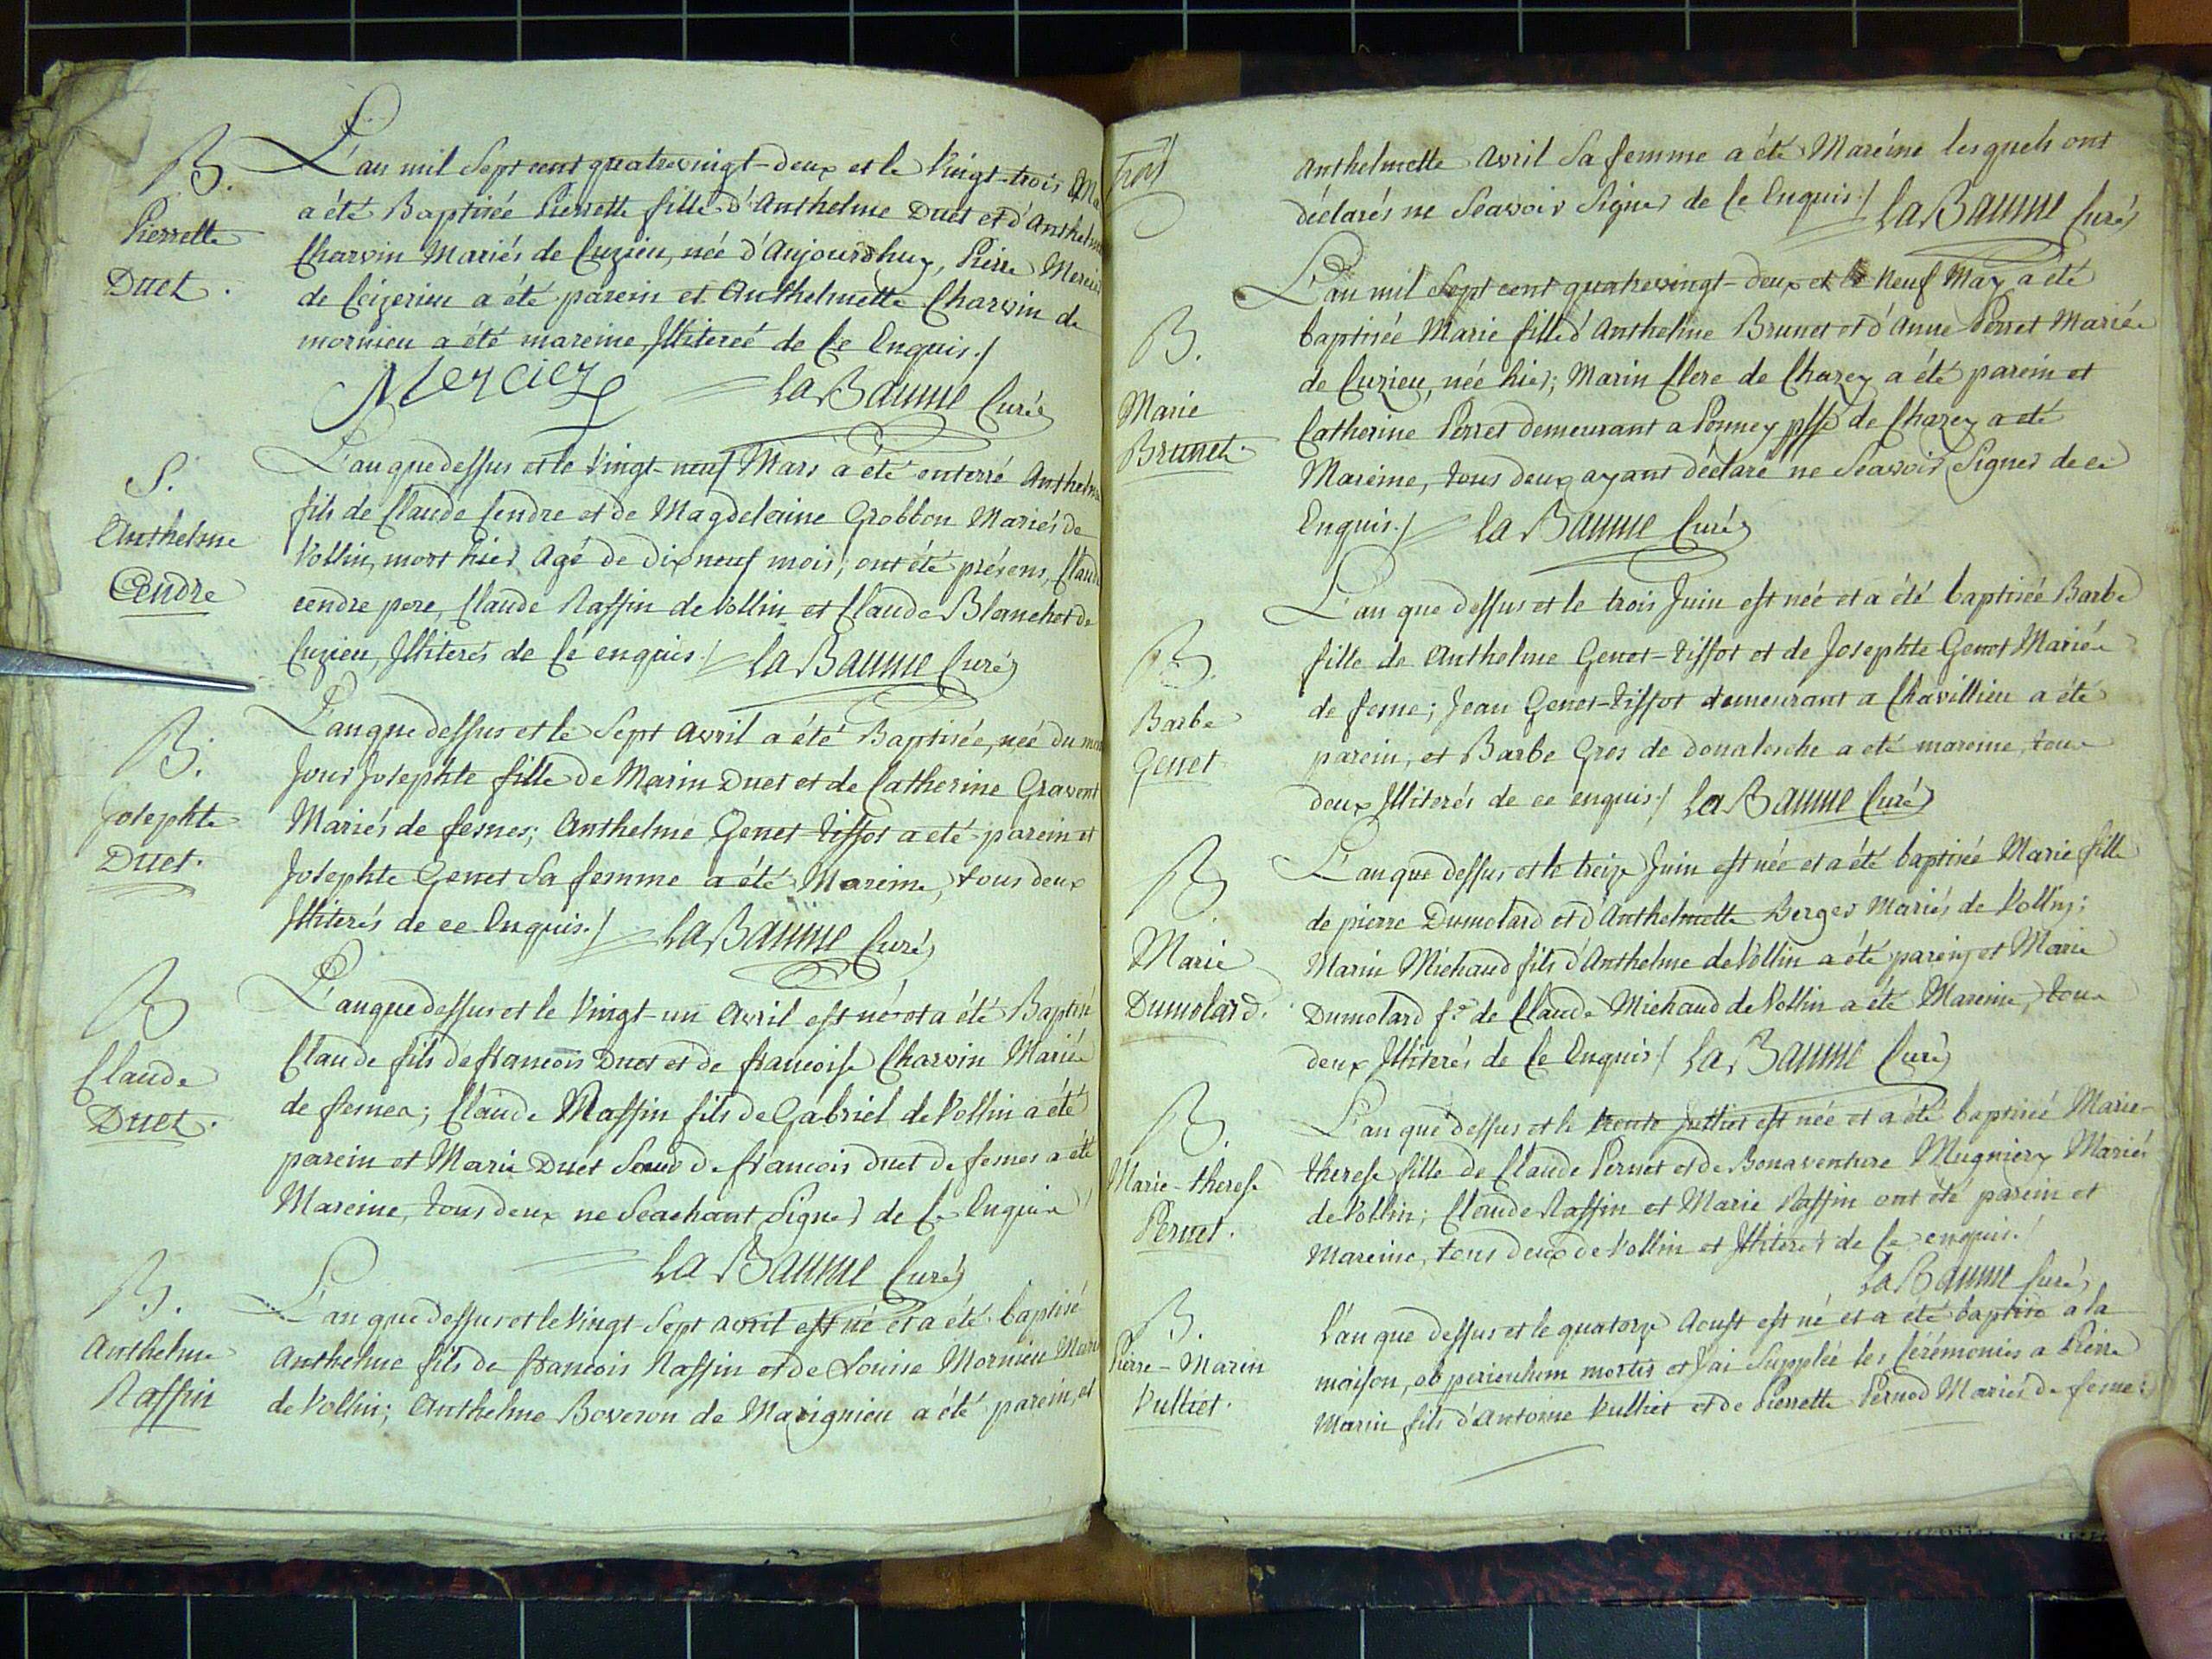 B.
Pierrette
Duet.
L'an mil Sept cent quatrevingt-deux et le Vingt-trois
a été Baptisée Pierrette fille d'Anthelme Duet et d'Anthelme
Charvin Mariés de Cuzieu, née d'Aujourdhuy, Pierre Mercier
de Ceizerieu a été parein et Anthelmette Charvin de
mornieu a été mareine, Illiterée de Ce Enquis./
Mercier La Baume Curé
S.
Anthelme
Cendre
L'an que dessus et le Vingt-neuf Mars a été enterré Anthelme
fils de Claude Cendre et de Magdelaine Grobbon Mariés de
Vollin, mort hier Agé de Dix neuf mois; ont été présens, Claude
cendre pere, Claude Raffin de Vollin et Claude Blanchet de
Cuzieu, Illiterés de Cé enquis./ La Baume Curé
B.
Josephte
Duet.
L'an que dessus et le Sept Avril a été Baptisée, née du même
Jour Josephte fille de Marin Duet et de Catherine Gravent
Mariés de fesnes; Anthelme Genet-Tissot a été parein et
Josephte Genet Sa femme a été Mareine, tous deux
Illiterés de ce Enquis./ La Baume Curé
B
Claude
Duet.
L'an que dessus et le Vingt-un Avril est né et a été Baptisé
Claude fils de francois Duet et de francoise Charvin Mariés
de fesnes; Claude Raffin fils de Gabriel de Vollin a été
parein et Marie Duet Soeur de francois duet de fesnes a été
Mareine, tous deux ne Seachant Signer de Ce Enquis
La Baume Curé
B.
Anthelme
Raffin
L'an que dessus et le Vingt-Sept avril est né et a été baptisé
Anthelme fils de francois Raffin et de Louise Mornieu Mariés
de Vollin; Anthelme Boveron de Marignieu a été parein, et
Anthelmette Avril Sa femme a été Maréine lesquels ont
déclarés ne Seavoir Signer de Ce Enquis./ La Baume Curé
B.
Marie
Brunet.
L'an mil Sept cent quatrevingt-deux et le Neuf May a été
baptisée Marie fille d'Anthelme Brunet et d'Anne Perret Mariés
de Cuzieu, née hier; Marin Clerc de Charey a été parein et
Catherine Perret demeurant a Ponney psse de Chazey a été
Mareine, tous deux ayant déclaré ne Seavoir Signer de ce
Enquis./ La Baume Curé
B.
Barbe
Genet
L'an que dessus et le trois Juin est née et a été baptisée Barbe
fille de Anthelme Genet-Tissot et de Josephte Genet Mariés
de fesne; Jean Genet-Tissot demeurant a Chavillieu a été
parein, et Barbe Gros de donalesche a eté mareine, tous
deux Illiterés de ce enquis./ La Baume Curé
B.
Marie
Dumolard.
L'an que dessus et le treize Juin est née et a été baptisée Marie fille
de pierre Dumolard et d'Anthelmette Berger Mariés de Vollin;
Marin Michaud fils d'Anthelme de Vollin a été parein, et Marie
Dumolard fe de Claude Michaud de Vollin a été Mareine, tous
deux Illiterés de Ce Enquis./ La Baume Curé
B.
Marie-therese
Pernet.
L'an que dessus et le trente Juillet est née et a été baptisée Marie-
therese fille de Claude Pernet et de Bonaventure Mugniery Mariés
de Vollin; Claude Raffin et Marie Raffin ont été parein et
Mareine, tous deux de Vollin et Illiterés de Ce enquis.
La Baume Curé
B.
Pierre-Marin
Vulliet.
L'an que dessus et le quatorze Aoust est né et a eté baptisé a la
maison, ob periculum mortis et J'ai Supplée les Cérémonies a Pierre
Marin fils d'Antoine Vulliet et de Pierrette Pernod Mariés de fesne;